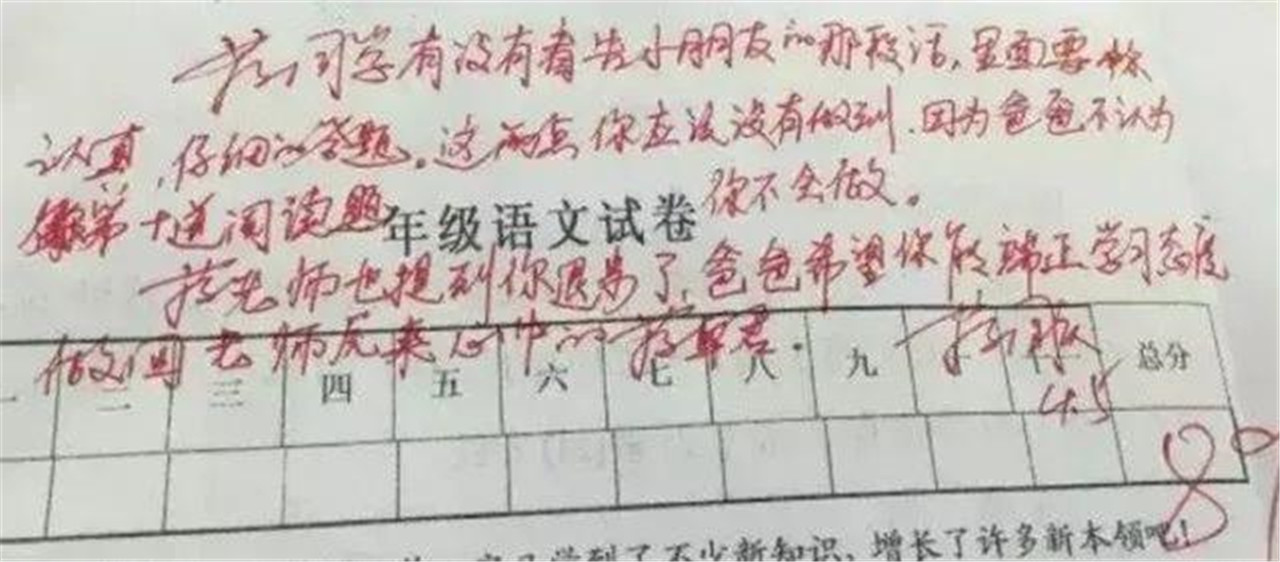 同学有没有看告小朋友的那段话,里面要你
认真,仔细的答题。这两点你应该没有做到.因为爸爸不认为
第十道阅读题
你不会做。
年级语文试卷
蒋老师也提到你退步了,爸爸希望你能端正学习态度
做回老师原来心中的蒋
一 二 三 四 五 六 七 八 九 十 总分
4.5
89
学到了不少新知识,增长了许多新本领吧!